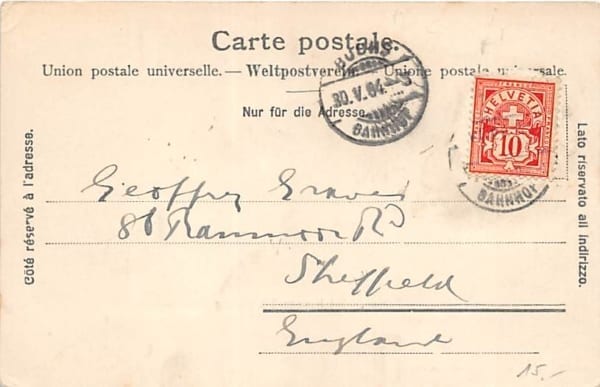 Carte postale.
Union postale universelle. — Weltpostverein. — Unione postale universale.
Nur für die Adresse.
BUCHS
30.V.04
BAHNHOF
HELVETIA
10
BAHNHOF
Côté réservé à l'adresse.
Lato riservato all indirizzo.
Geoffrey Graves
86 Ranmoor Rd
Sheffield
England
15.-